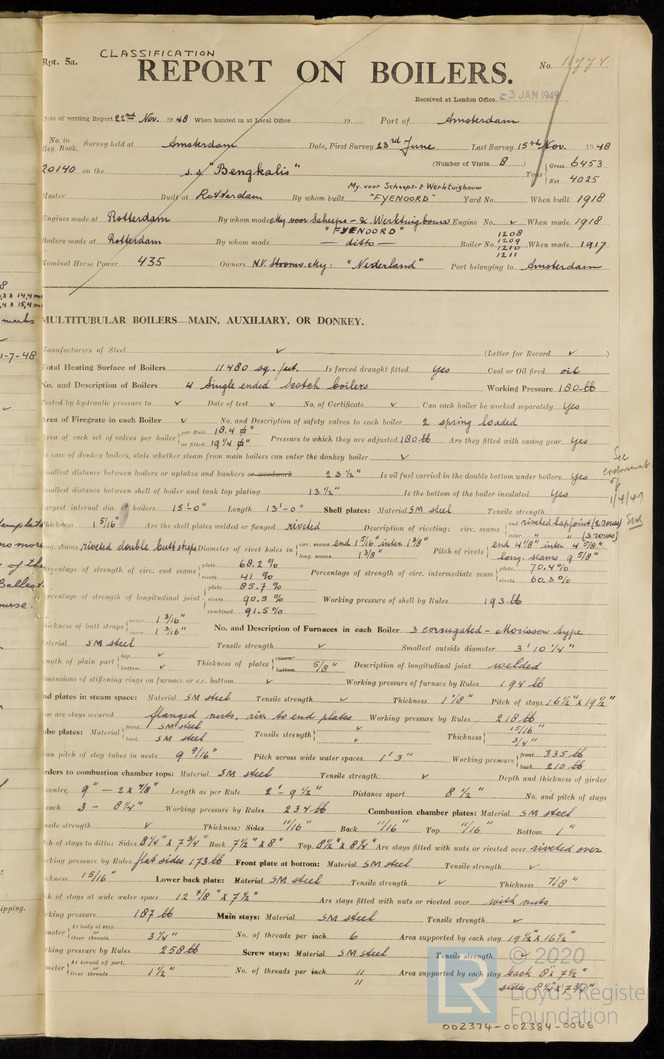 CLASSIFICATION
Rpt. 5a.
No.
REPORT ON BOILERS.
Received at London Office 3 JAN 1949
Date of writing Report 22nd Nov. 1948 When handed in at Local Office 19 Port of Amsterdam
No. in Reg. Book. Survey held at Amsterdam Date, First Survey 23rd June Last Survey 15th Nov. 1948
20140 on the s.s. "Bengkalis" (Number of Visits 8) Tons Gross 6453 Net 4025
Master Built at Rotterdam By whom built My. voor Scheeps- & Werktuigbouw "FYENOORD" Yard No. When built 1918
Engines made at Rotterdam By whom made My. voor Scheeps- & Werktuigbouw "FYENOORD" Engine No. When made 1918
Boilers made at Rotterdam By whom made — ditto — Boiler No. 1208 1209 1210 1211 When made 1917
Nominal Horse Power 435 Owners N.V. Stoomv. My: "Nederland" Port belonging to Amsterdam
MULTITUBULAR BOILERS—MAIN, AUXILIARY, OR DONKEY.
Manufacturers of Steel ✓ (Letter for Record ✓ )
Total Heating Surface of Boilers 11480 sq. feet. Is forced draught fitted Yes Coal or Oil fired oil
No. and Description of Boilers 4 Single ended Scotch boilers Working Pressure 180 lb
Tested by hydraulic pressure to ✓ Date of test ✓ No. of Certificate ✓ Can each boiler be worked separately Yes
Area of Firegrate in each Boiler ✓ No. and Description of safety valves to each boiler 2 spring loaded
Area of each set of valves per boiler per Rule 18.4 as fitted 19 1/4 Pressure to which they are adjusted 180 lb Are they fitted with easing gear Yes
In case of donkey boilers, state whether steam from main boilers can enter the donkey boiler ✓
Smallest distance between boilers or uptakes and bunkers or woodwork 23 1/2" Is oil fuel carried in the double bottom under boilers Yes
Smallest distance between shell of boiler and tank top plating 13 1/2" Is the bottom of the boiler insulated Yes
Largest internal dia. of boilers 15'-0" Length 13'-0" Shell plates: Material SM steel Tensile strength
Thickness 1 5/16" Are the shell plates welded or flanged riveted Description of riveting: circ. seams end riveted lap joint (2 rows) inter " " (3 rows)
long. seams riveted double butt straps Diameter of rivet holes in circ. seams end 1 5/16" inter. 1 3/8" long. seams 1 3/8" Pitch of rivets end 4 1/8" inter 4 5/8" long. seams 9 5/8"
Percentage of strength of circ. end seams plate 68.2 % rivets 41 % Percentage of strength of circ. intermediate seam plate 70.4% rivets 60.3%
Percentage of strength of longitudinal joint plate 85.7 % rivets 90.5 % combined 91.5 % Working pressure of shell by Rules 193 lb
Thickness of butt straps outer 1 3/16" inner 1 3/16" No. and Description of Furnaces in each Boiler 3 corrugated - Morisson type
Material SM steel Tensile strength ✓ Smallest outside diameter 3' 10 1/4"
Length of plain part top ✓ bottom ✓ Thickness of plates bottom 5/8" Description of longitudinal joint welded
Dimensions of stiffening rings on furnace or c.c. bottom ✓ Working pressure of furnace by Rules 194 lb
End plates in steam space: Material SM steel Tensile strength ✓ Thickness 1 1/8" Pitch of stays 16 1/2" x 19 1/2"
How are stays secured flanged nuts, riv. to end plates Working pressure by Rules 218 lb
Tube plates: Material front SM steel back SM steel Tensile strength ✓ Thickness 15/16" 3/4"
Mean pitch of stay tubes in nests 9 9/16" Pitch across wide water spaces 1' 3" Working pressure front 335 lb back 210 lb
Girders to combustion chamber tops: Material SM steel Tensile strength ✓ Depth and thickness of girder
centre 9" - 2 x 7/8" Length as per Rule 2' - 9 1/2" Distance apart 8 1/2" No. and pitch of stays
each 3 - 8 1/4" Working pressure by Rules 234 lb Combustion chamber plates: Material SM steel
Tensile strength ✓ Thickness: Sides 11/16" Back 11/16" Top 11/16" Bottom 1"
Pitch of stays to ditto: Sides 8 1/4" x 7 3/4" Back 7 1/2" x 8" Top 8 1/2" x 8 1/4" Are stays fitted with nuts or riveted over riveted over
Working pressure by Rules flat sides 173 lb Front plate at bottom: Material SM steel Tensile strength ✓
Thickness 15/16" Lower back plate: Material SM steel Tensile strength ✓ Thickness 7/8"
Pitch of stays at wide water space 12 3/8" x 7 1/2" Are stays fitted with nuts or riveted over with nuts
Working pressure 187 lb Main stays: Material SM steel Tensile strength ✓
Diameter At body of stay or Over threads 3 1/4" No. of threads per inch 6 Area supported by each stay 19 1/2" x 16 1/2"
Working pressure by Rules 258 lb Screw stays: Material SM steel Tensile strength ✓
Diameter At turned off part, or Over threads 1 1/2" No. of threads per inch 11 Area supported by each stay back 8" x 7 1/2"
11 side 8 1/4" x 7 3/4"
See endorsement of 1/4/49
1-7-48
© 2020
LR
Lloyd's Register Foundation
002374-002384-0066